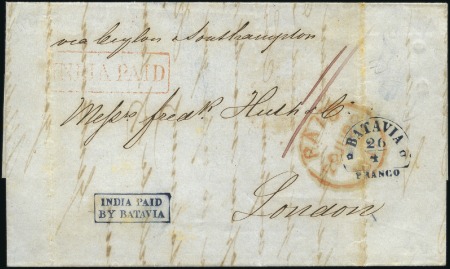 via Ceylon & Southampton
INDIA PAID
Messrs fredk Huth & Co
PAID
BATAVIA
26
4
FRANCO
INDIA PAID
BY BATAVIA
London